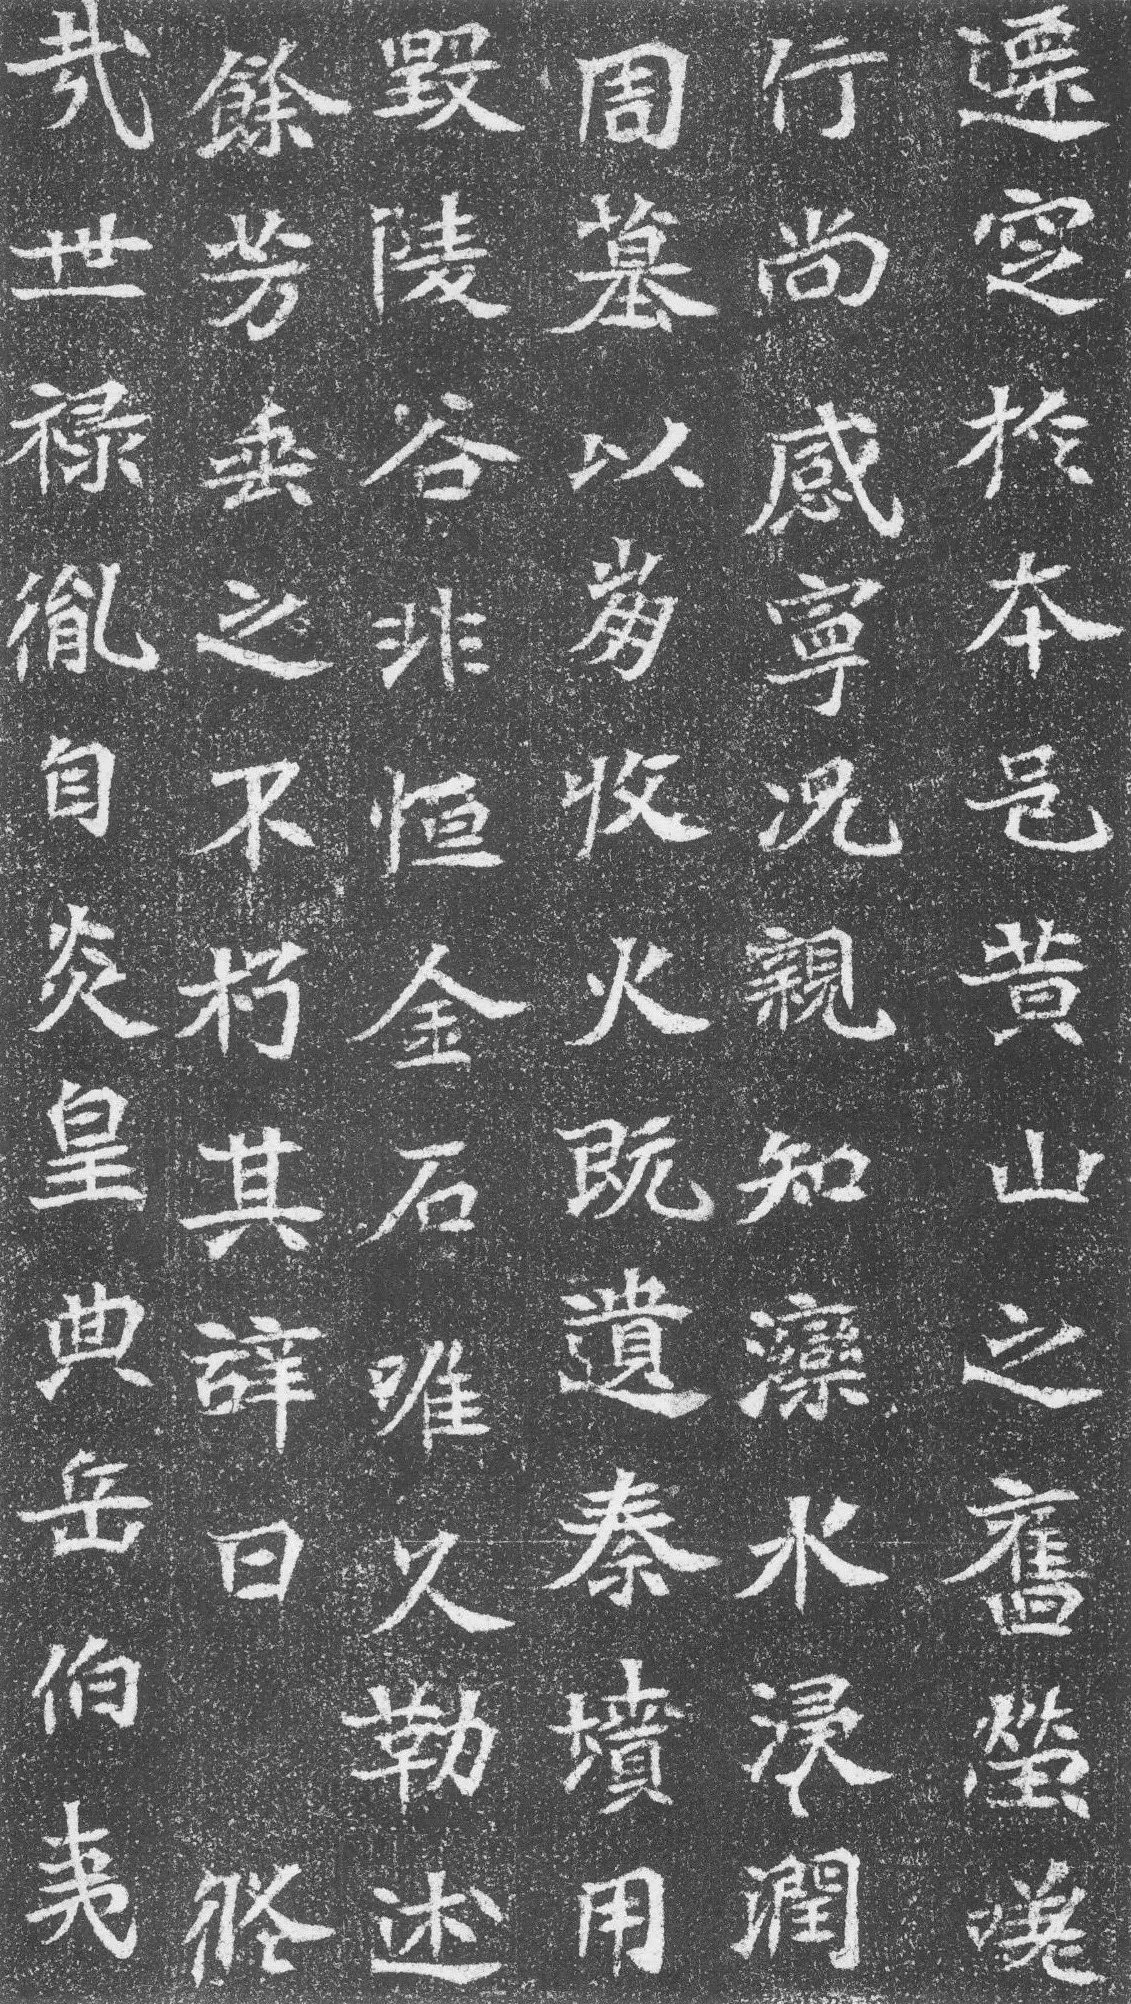 遷窆於本邑黄山之舊塋嗟
行尚感寧況親知灤水浸潤
周墓以芻收火既遺秦墳用
毀陵谷非恒金石唯久勒述
餘芳垂之不朽其辞曰 攸
哉世禄胤自炎皇典岳伯夷